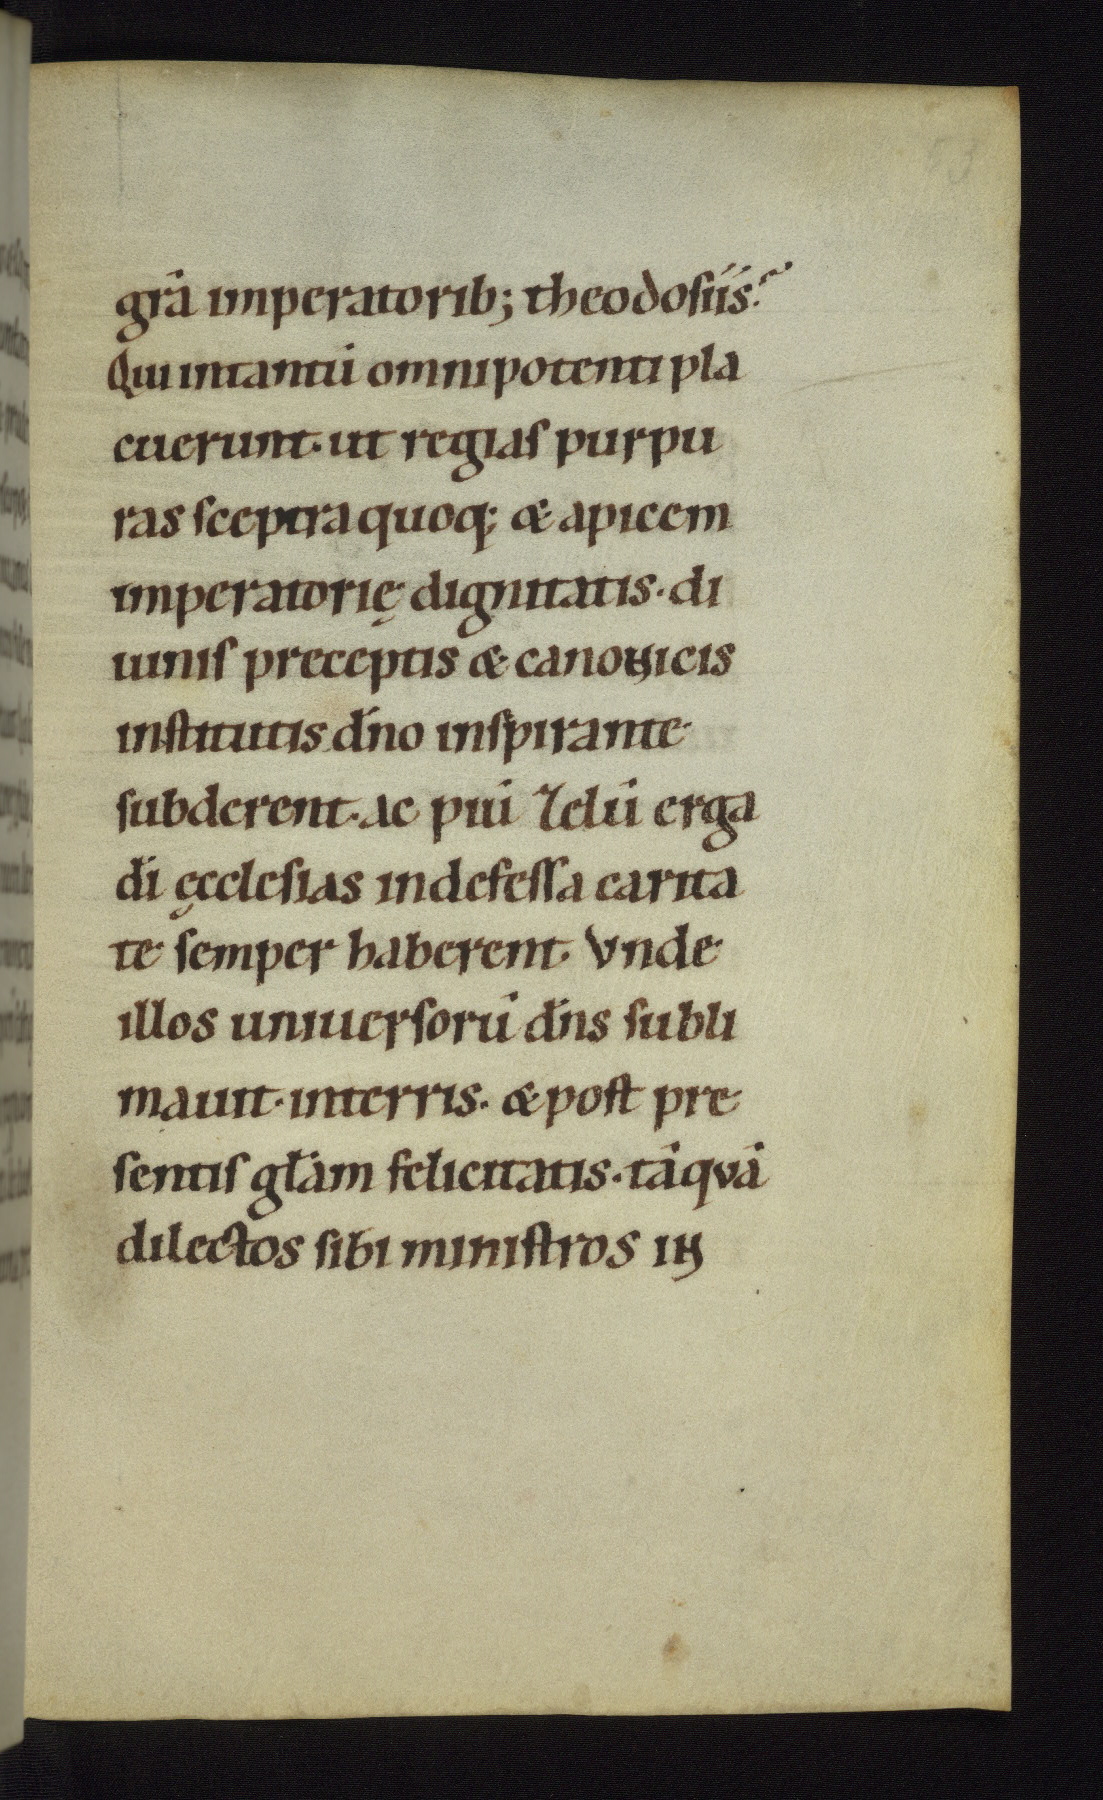 53
grā imperatorib; theodosiis.
Qui intantū omnipotenti pla
cuerunt· ut regias purpu
ras sceptra quoq; & apicem
imperatorię dignitatis· di
uinis preceptis & canonicis
institutis dn̄o inspirante
subderent· ac piū zelū erga
dī ęcclesias indefessa carita
te semper haberent· Vnde
illos uniuersorū dn̄s subli
mauit· interris· & post pre
sentis glām felicitatis· tāqvā
dilectos sibi ministros in